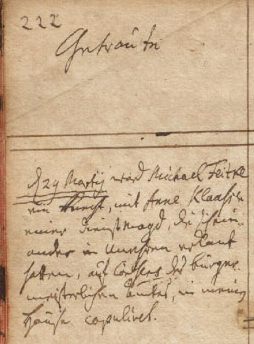 222
Getraute
d 29 Martij ward Michael Feitke
ein Knecht, mit Anne Klaassen
einer Dienstmagd, die sich ein
ander in Unehren erkant
hatten, auf Consens des bürger
meisterlichen Amtes, in meinem
Hause copuliret.